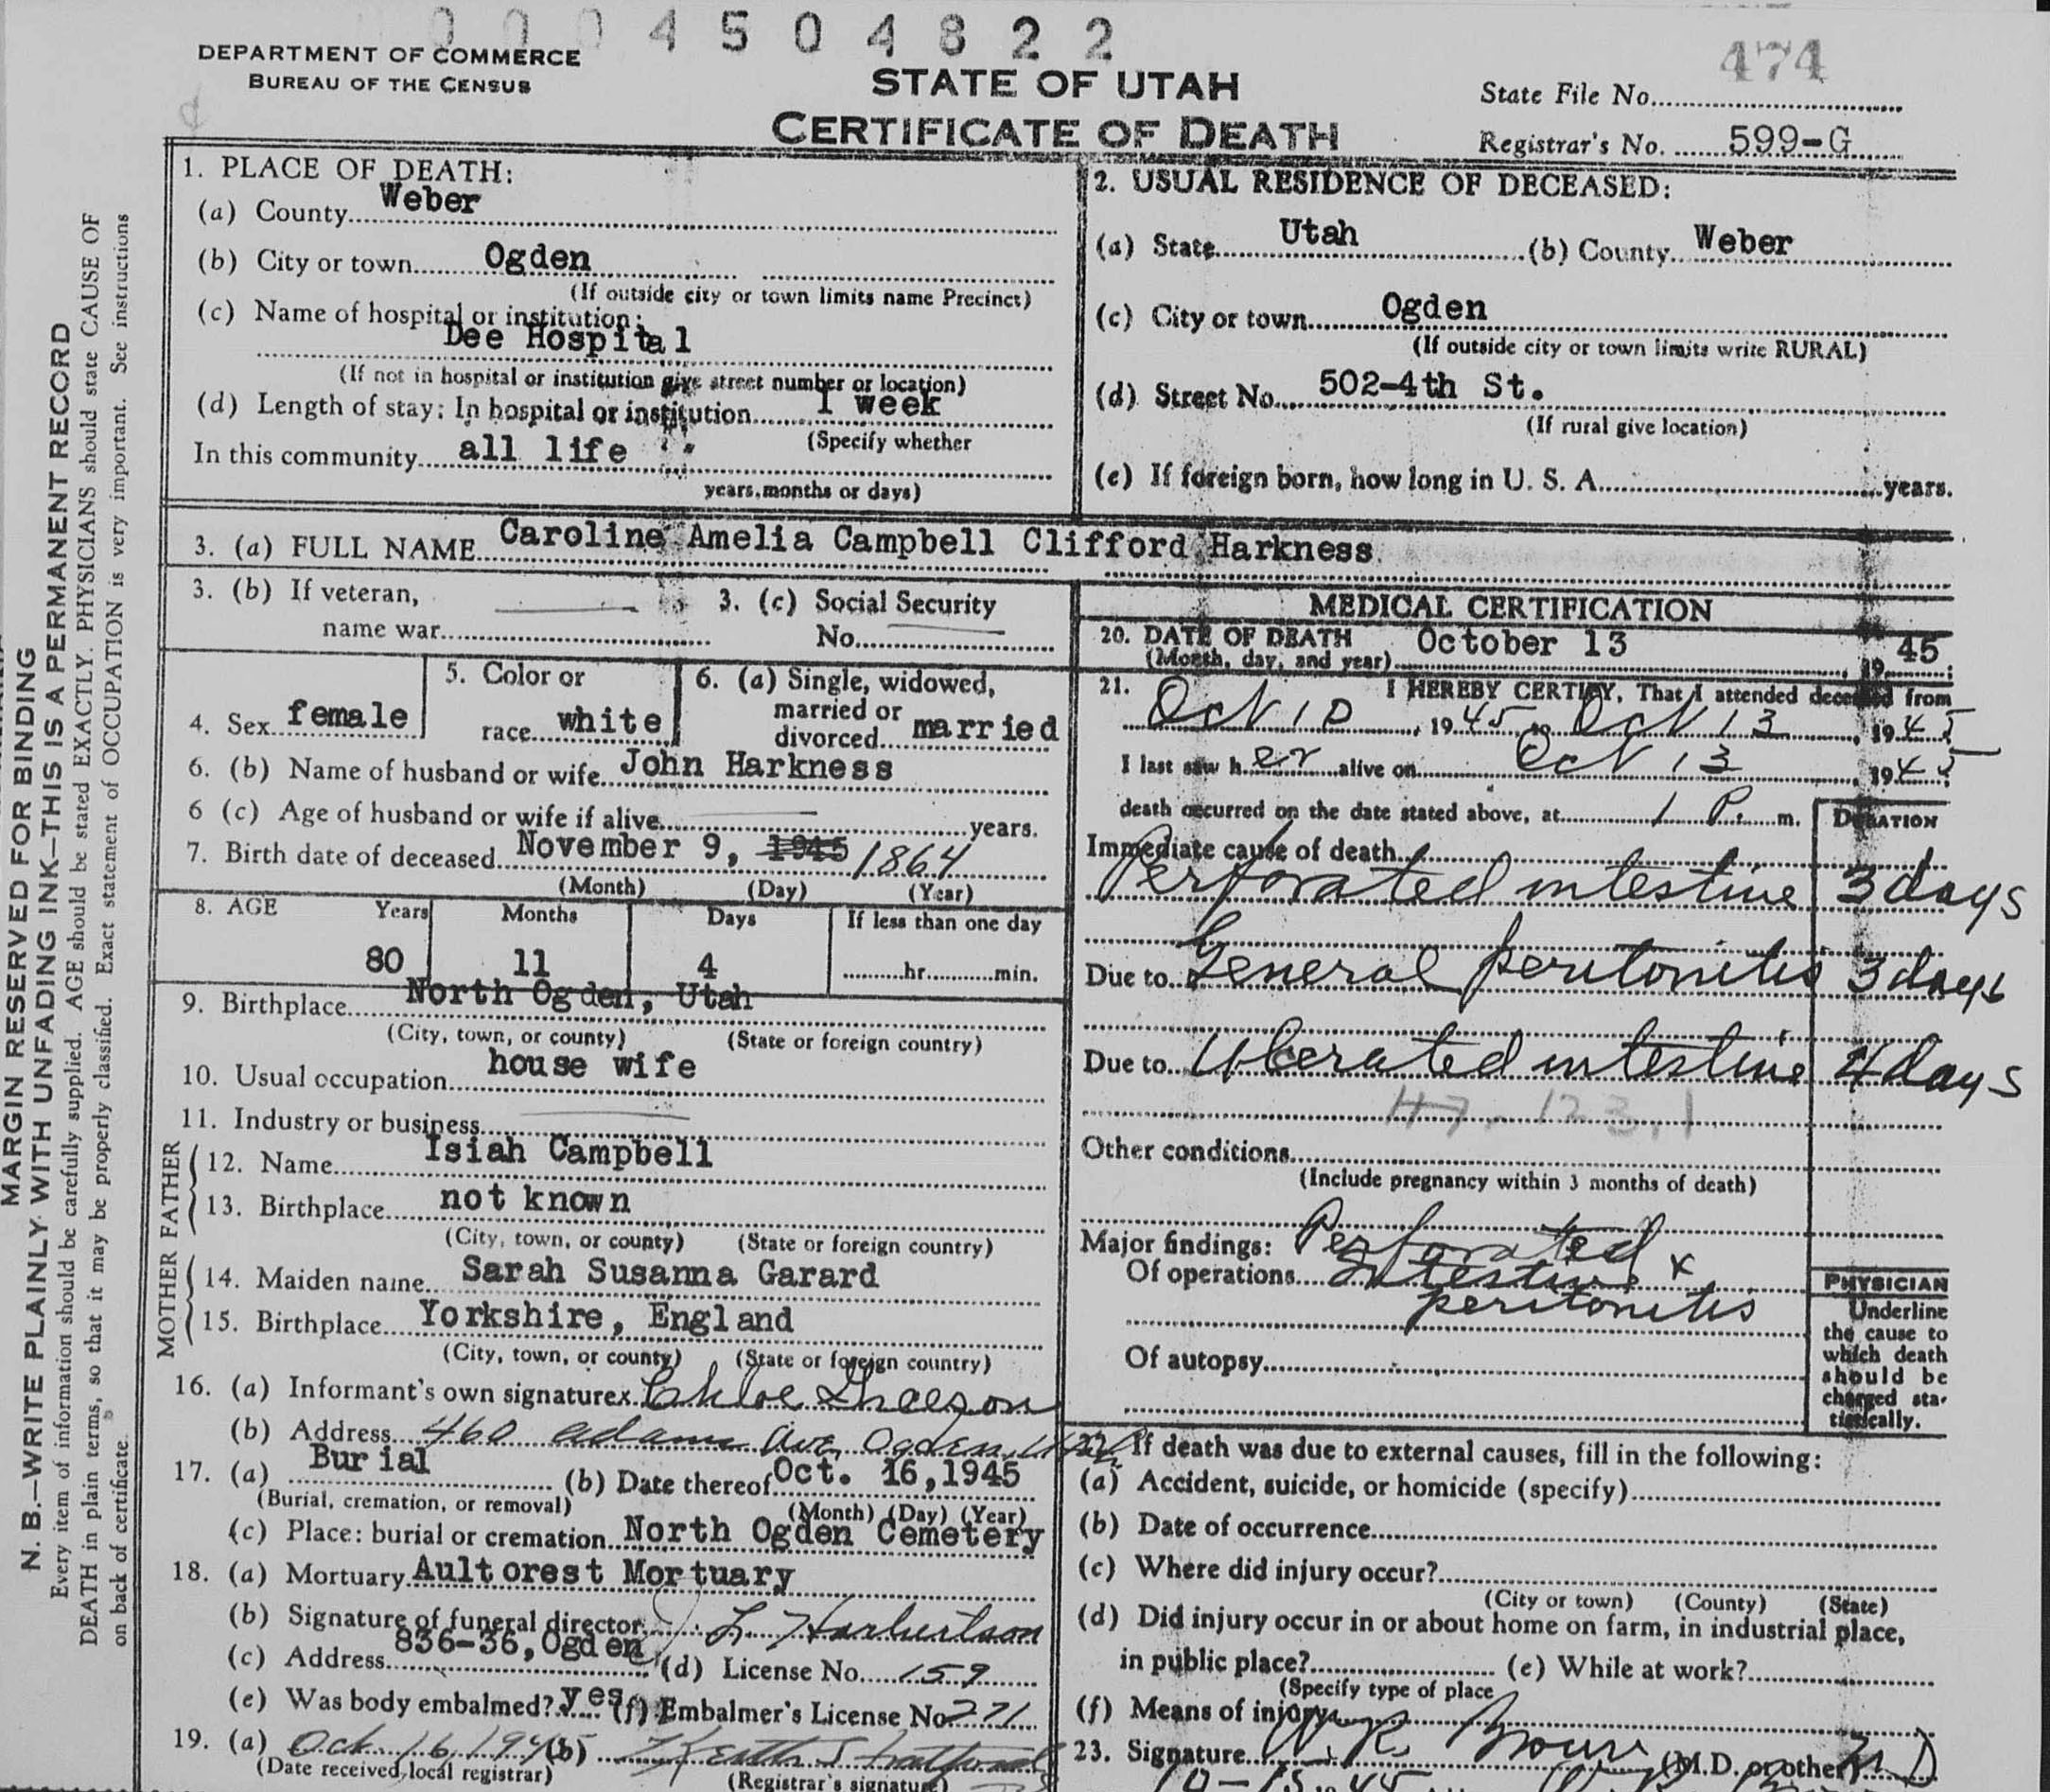 0004504822
DEPARTMENT OF COMMERCE
BUREAU OF THE CENSUS
STATE OF UTAH
CERTIFICATE OF DEATH
State File No. 474
Registrar's No. 599-G
MARGIN RESERVED FOR BINDING
N. B.—WRITE PLAINLY WITH UNFADING INK—THIS IS A PERMANENT RECORD
Every item of information should be carefully supplied. AGE should be stated EXACTLY. PHYSICIANS should state CAUSE OF
DEATH in plain terms, so that it may be properly classified. Exact statement of OCCUPATION is very important. See instructions
on back of certificate.
1. PLACE OF DEATH:
(a) County Weber
(b) City or town Ogden
(If outside city or town limits name Precinct)
(c) Name of hospital or institution:
Dee Hospital
(If not in hospital or institution give street number or location)
(d) Length of stay: In hospital or institution 1 week
(Specify whether
In this community all life
years, months or days)
2. USUAL RESIDENCE OF DECEASED:
(a) State Utah (b) County Weber
(c) City or town Ogden
(If outside city or town limits write RURAL)
(d) Street No. 502-4th St.
(If rural give location)
(e) If foreign born, how long in U. S. A. years.
3. (a) FULL NAME Caroline Amelia Campbell Clifford Harkness
3. (b) If veteran,
name war
3. (c) Social Security
No.
4. Sex female
5. Color or
race white
6. (a) Single, widowed,
married or
divorced married
6. (b) Name of husband or wife John Harkness
6 (c) Age of husband or wife if alive years.
7. Birth date of deceased November 9, 1945 1864
(Month) (Day) (Year)
8. AGE Years Months Days If less than one day
80 11 4 hr. min.
9. Birthplace North Ogden, Utah
(City, town, or county) (State or foreign country)
10. Usual occupation house wife
11. Industry or business
FATHER
12. Name Isiah Campbell
13. Birthplace not known
(City, town, or county) (State or foreign country)
MOTHER
14. Maiden name Sarah Susanna Garard
15. Birthplace Yorkshire, England
(City, town, or county) (State or foreign country)
16. (a) Informant's own signature x Chloe
(b) Address 460 Adams Ave, Ogden, Utah
17. (a) Burial (b) Date thereof Oct. 16, 1945
(Burial, cremation, or removal) (Month) (Day) (Year)
(c) Place: burial or cremation North Ogden Cemetery
18. (a) Mortuary Aultorest Mortuary
(b) Signature of funeral director L. Harbertson
(c) Address 836-36, Ogden (d) License No. 159
(e) Was body embalmed? yes (f) Embalmer's License No. 271
19. (a) Oct. 16, 1945 (b) Keith Stratford
(Date received local registrar) (Registrar's signature)
MEDICAL CERTIFICATION
20. DATE OF DEATH October 13
(Month, day, and year) 19 45
21. I HEREBY CERTIFY, That I attended deceased from
Oct 10, 1945 to Oct 13, 1945
I last saw her alive on Oct 13, 1945
death occurred on the date stated above, at 1 P. m.
DURATION
Immediate cause of death
Perforated intestine 3 days
Due to General peritonitis 3 days
Due to Ulcerated intestine 4 days
47-123.1
Other conditions
(Include pregnancy within 3 months of death)
Major findings: Perforated
Of operations Intestine &
peritonitis
Of autopsy
PHYSICIAN
Underline
the cause to
which death
should be
charged sta-
tistically.
22. If death was due to external causes, fill in the following:
(a) Accident, suicide, or homicide (specify)
(b) Date of occurrence
(c) Where did injury occur?
(City or town) (County) (State)
(d) Did injury occur in or about home on farm, in industrial place,
in public place? (e) While at work?
(Specify type of place
(f) Means of injury
23. Signature (M.D. or other)